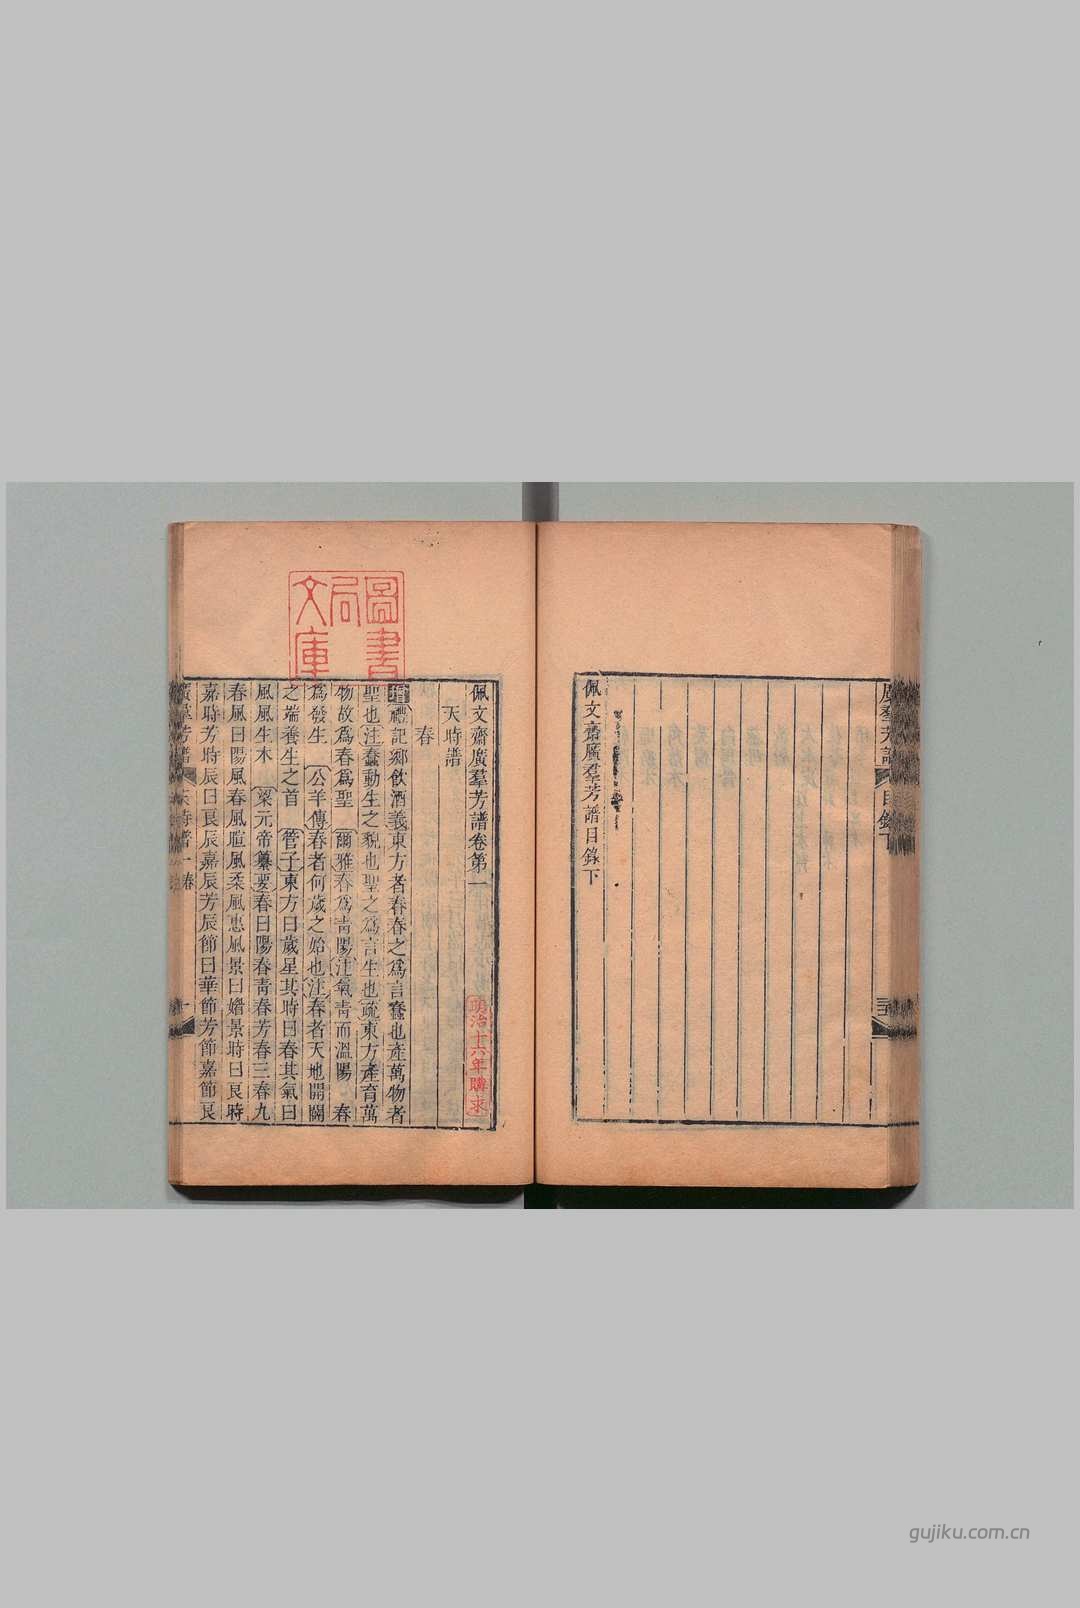 廣羣芳譜
目錄下
佩文齋廣羣芳譜目錄下
佩文齋廣羣芳譜卷第一
明治十六年購求
天時譜
春
增禮記鄉飲酒義東方者春春之爲言蠢也產萬物者
聖也注蠢動生之貌也聖之爲言生也疏東方產育萬
物故爲春爲聖 爾雅春爲靑陽注氣靑而溫陽 春
爲發生 公羊傳春者何歲之始也注春者天地開闢
之端養生之首 管子東方曰歲星其時曰春其氣曰
風風生木 梁元帝纂要春曰陽春靑春芳春三春九
春風曰陽風春風暄風柔風惠風景曰媚景時曰良時
嘉時芳時辰曰良辰嘉辰芳辰節曰華節芳節嘉節良
廣羣芳譜
天時譜一 春
一
圖書
局
文庫
gujiku.com.cn